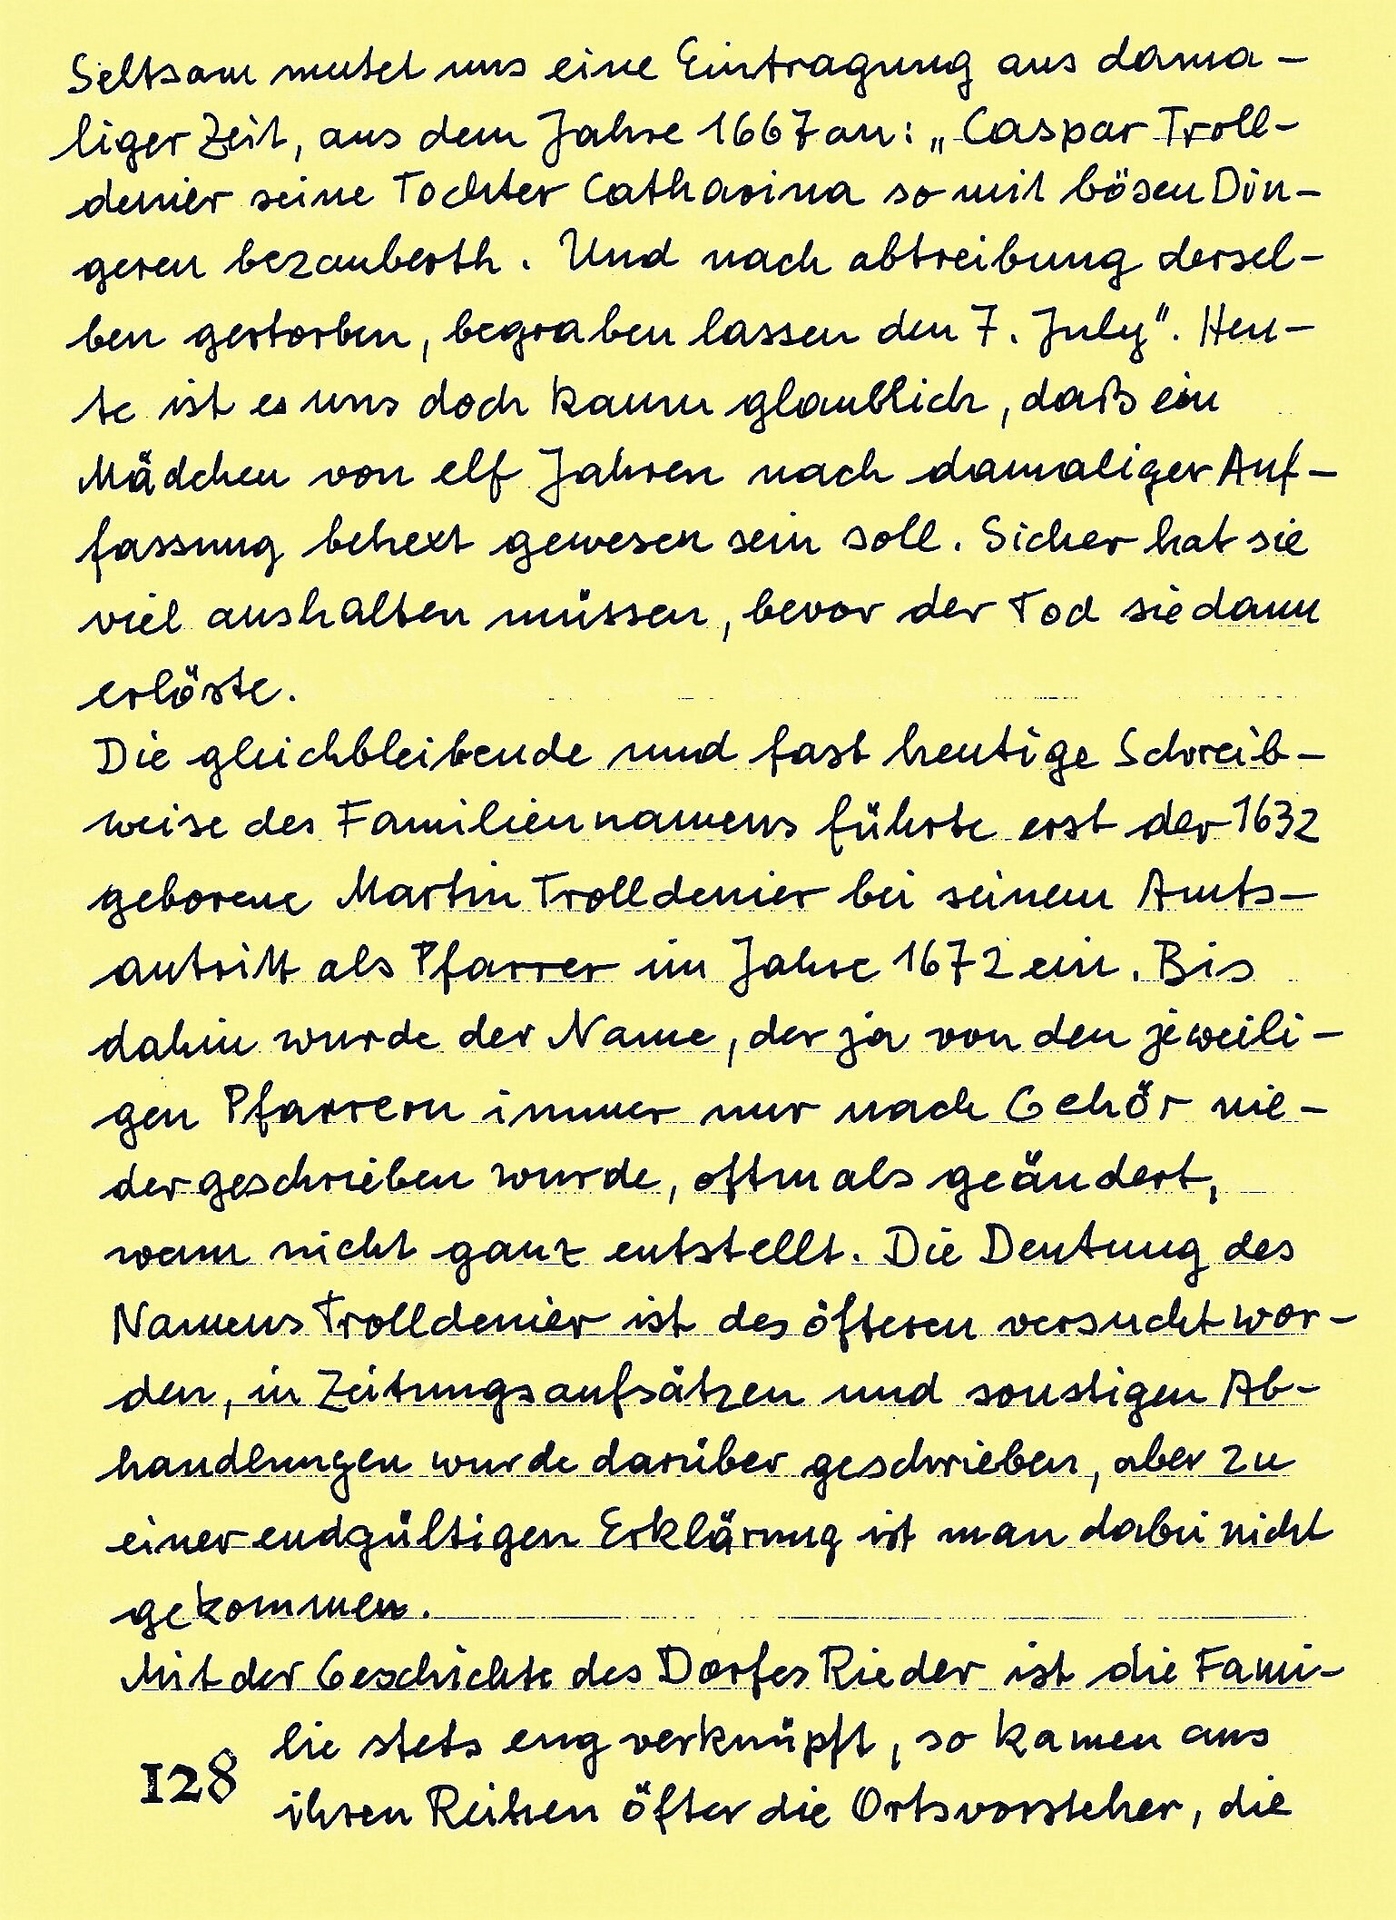 Seltsam mutet uns eine Eintragung aus dama-
liger Zeit, aus dem Jahre 1667 an: „Caspar Troll-
denier seine Tochter Catharina so mit bösen Din-
geren bezauberth. Und nach abtreibung dersel-
ben gestorben, begraben lassen den 7. July". Heu-
te ist es uns doch kaum glaublich, daß ein
Mädchen von elf Jahren nach damaliger Auf-
fassung behext gewesen sein soll. Sicher hat sie
viel aushalten müssen, bevor der Tod sie dann
erlöste.
Die gleichbleibende und fast heutige Schreib-
weise des Familiennamens führte erst der 1632
geborene Martin Trolldenier bei seinem Amts-
antritt als Pfarrer im Jahre 1672 ein. Bis
dahin wurde der Name, der ja von den jeweili-
gen Pfarrern immer nur nach Gehör nie-
dergeschrieben wurde, oftmals geändert,
wenn nicht ganz entstellt. Die Deutung des
Namens Trolldenier ist des öfteren versucht wor-
den, in Zeitungsaufsätzen und sonstigen Ab-
handlungen wurde darüber geschrieben, aber zu
einer endgültigen Erklärung ist man dabei nicht
gekommen.
Mit der Geschichte des Dorfes Rieder ist die Fami-
lie stets eng verknüpft, so kamen aus
128 ihren Reihen öfter die Ortsvorsteher, die